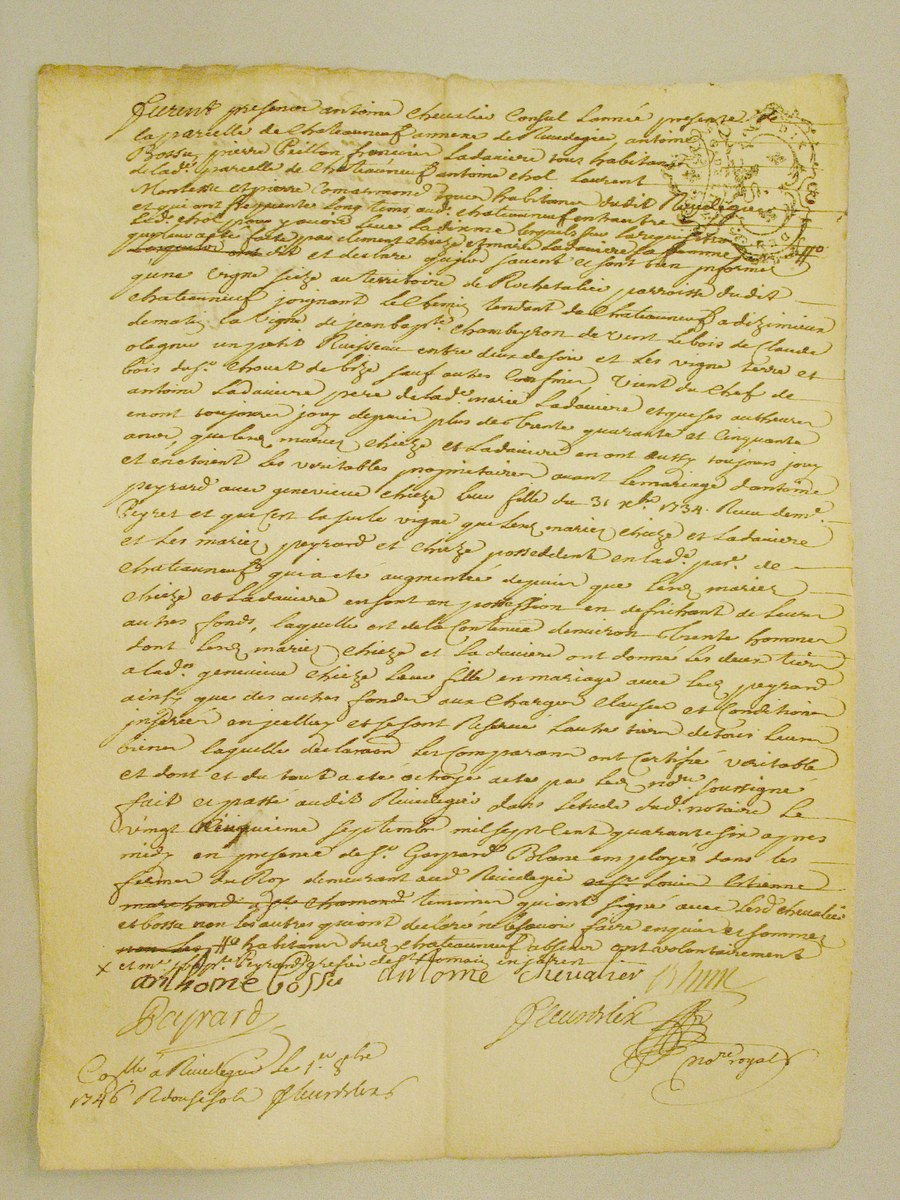 Furent presens antoine Chevalier Consul Lannée presente de
la parcelle de Chateauneuf annexe de Rivedegier antoine
Bossu, pierre françois Ladaviere tous habitans
de lad. parcelle de Chateauneuf antoine chol Laurent
et pierre Comarmond tous habitans dudit Rivedegier
et qui ont frequenté Long tems aud. chateauneuf entre autre
Led. chol pour y avoir Levé La dixme Lesquels sur la requisition
que leur a été faite par clement Chieze et marie Ladaviere sa femme
ont dit et declaré quils savent et sont bien informé
qune vigne size au territoire de Rochetaliée parroisse dudit
chateauneuf joignant Le chemin tendant de chateauneuf a dizimieux
de matin, la vigne de jean bapte. Chambeyron de vent Le bois de Claude
un petit Ruisseau entre deux de soir et Les vigne terre et
bois du Sr. Chovet de bize sauf autres Confins, vient du chef de
antoine Ladaviere pere de lad. marie Ladaviere et que ses autheurs
en ont toujours jouy depuis plus de trente quarante et Cinquante
ans, que Lesd. mariez chieze et Ladaviere en ont aussy toujours jouy
et en etoient Les veritables proprietaires avant Le mariage dantoine
peyrard avec genevieve chieze Leur fille du 31 xbre 1734. Receu de me.
Peyret et que Cest la seule vigne que Lesd. mariez chieze et Ladaviere
et Les mariez peyrard et chieze possedent en lad. par. de
chateauneuf qui a eté augmentée depuis que Lesd. mariez
chieze et Ladaviere en sont en possession en defrichant de Leurs
autres fonds, laquelle est de la Contenue denviron trente hommes
dont Lesd. mariez chieze et Ladaviere ont donné Les deux tiers
a lad. genevieve chieze Leur fille en mariage avec Led. peyrard
ainsy que des autres fonds aux Charges Clauses et Conditions
inserées en jcelluy et se sont Reservé Lautre tiers de tous Leurs
biens laquelle declaraon Les Comparans ont Certifié veritable
et dont et du tout acte octroyé par Led. nore. soussigné
fait et passé audit Rivedegier dans Letude dud. notaire Le
vingt septembre mil sept cent quarante six apres
midy en presence de Sr. Gaspard Blanc employé dans les
fermes du Roy demeurant aud. Rivedegier et Sr. Louis Estienne
marchand a St. Chamond temoins qui ont signé avec Lesd. chevalier
et bossu non Les autres qui ont declaré ne Le savoir faire enquis et sommez
habitans dud. chateauneuf absens ont volontairement
x et me. Peyrard greffier de St. Romain en jarest
anthoine bossu antoine chevalier Blanc
Peyrard Fleurdelix
nore. royal
Conllé. a Rivedegier Le 1er. 8bre
1746 R douze sols Fleurdelix